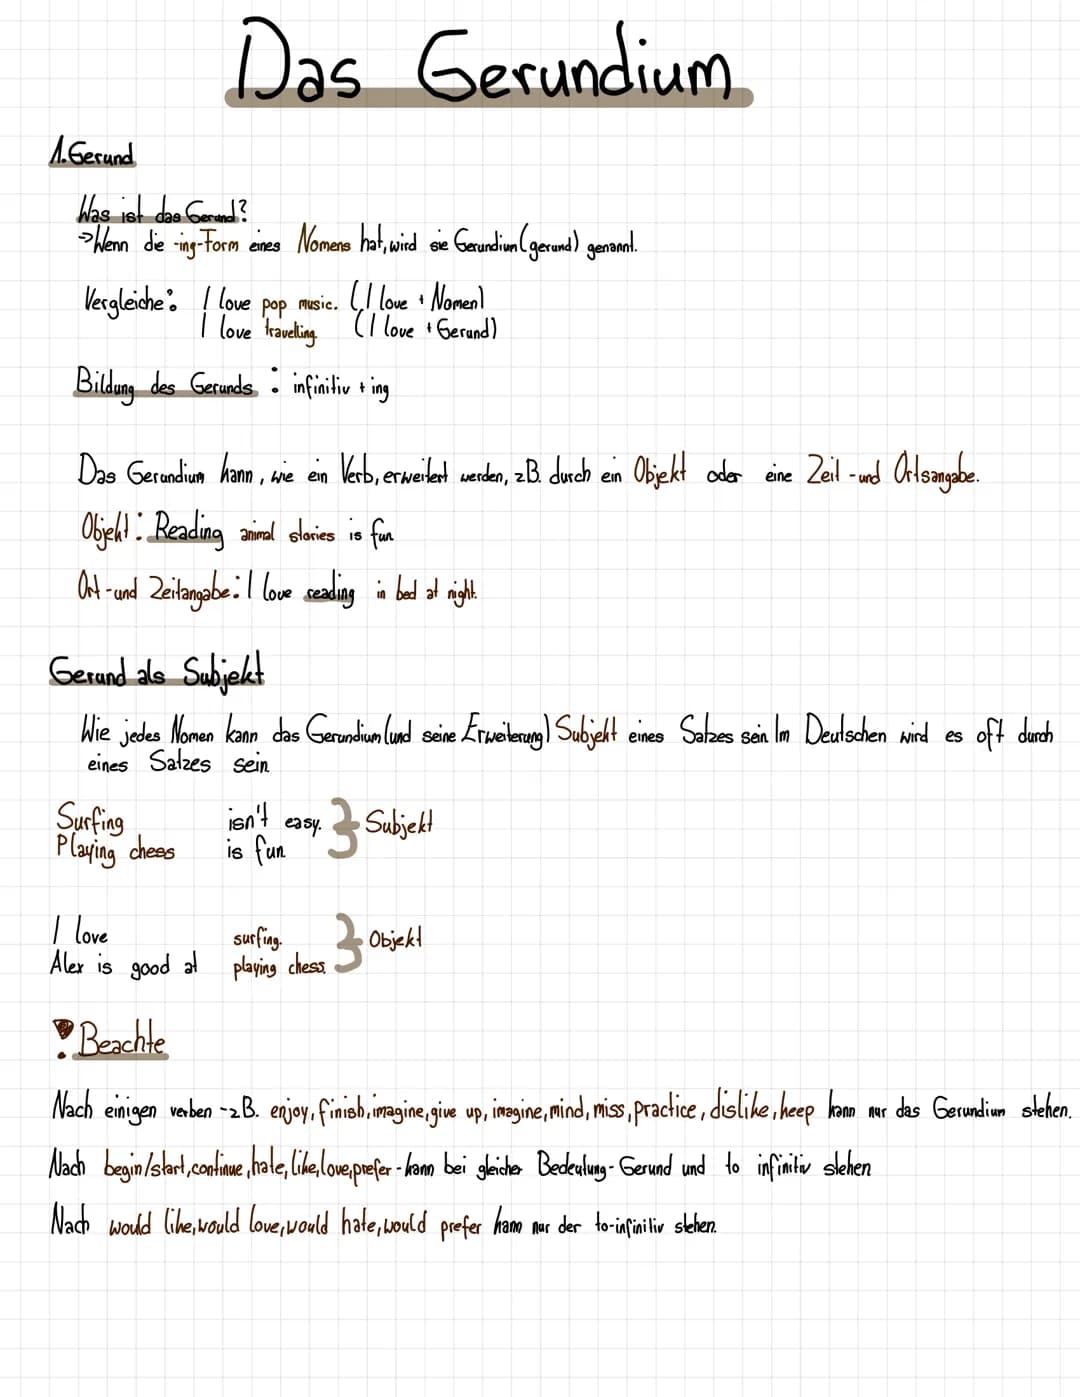 Das Gerundium
1. Gerund
Was ist das Gerund?
→Wenn die -ing-Form eines Nomens hat, wird sie Gerundium (gerund) genannt.
Vergleiche: I love pop music. (I love + Nomen)
I love travelling. (I love + Gerund)
Bildung des Gerunds: infinitiv + ing
Das Gerundium kann, wie ein Verb, erweitert werden, z.B. durch ein Objekt oder eine Zeit -und Ortsangabe.
Objekt: Reading animal stories is fun
Ort -und Zeitangabe: I love reading in bed at night.
Gerund als Subjekt
Wie jedes Nomen kann das Gerundium (und seine Erweiterung) Subjekt eines Satzes sein Im Deutschen wird es oft durch
eines Satzes sein
Surfing isn't easy. } Subjekt
Playing chess is fun
I love surfing. } Objekt
Alex is good at playing chess.
! Beachte
Nach einigen verben -z.B. enjoy, finish, imagine, give up, imagine, mind, miss, practice, dislike, keep kann nur das Gerundium stehen.
Nach begin/start, continue, hate, like, love, prefer - kann bei gleicher Bedeutung - Gerund und to infinitiv stehen
Nach would like, would love, would hate, would prefer kann nur der to-infinitiv stehen.